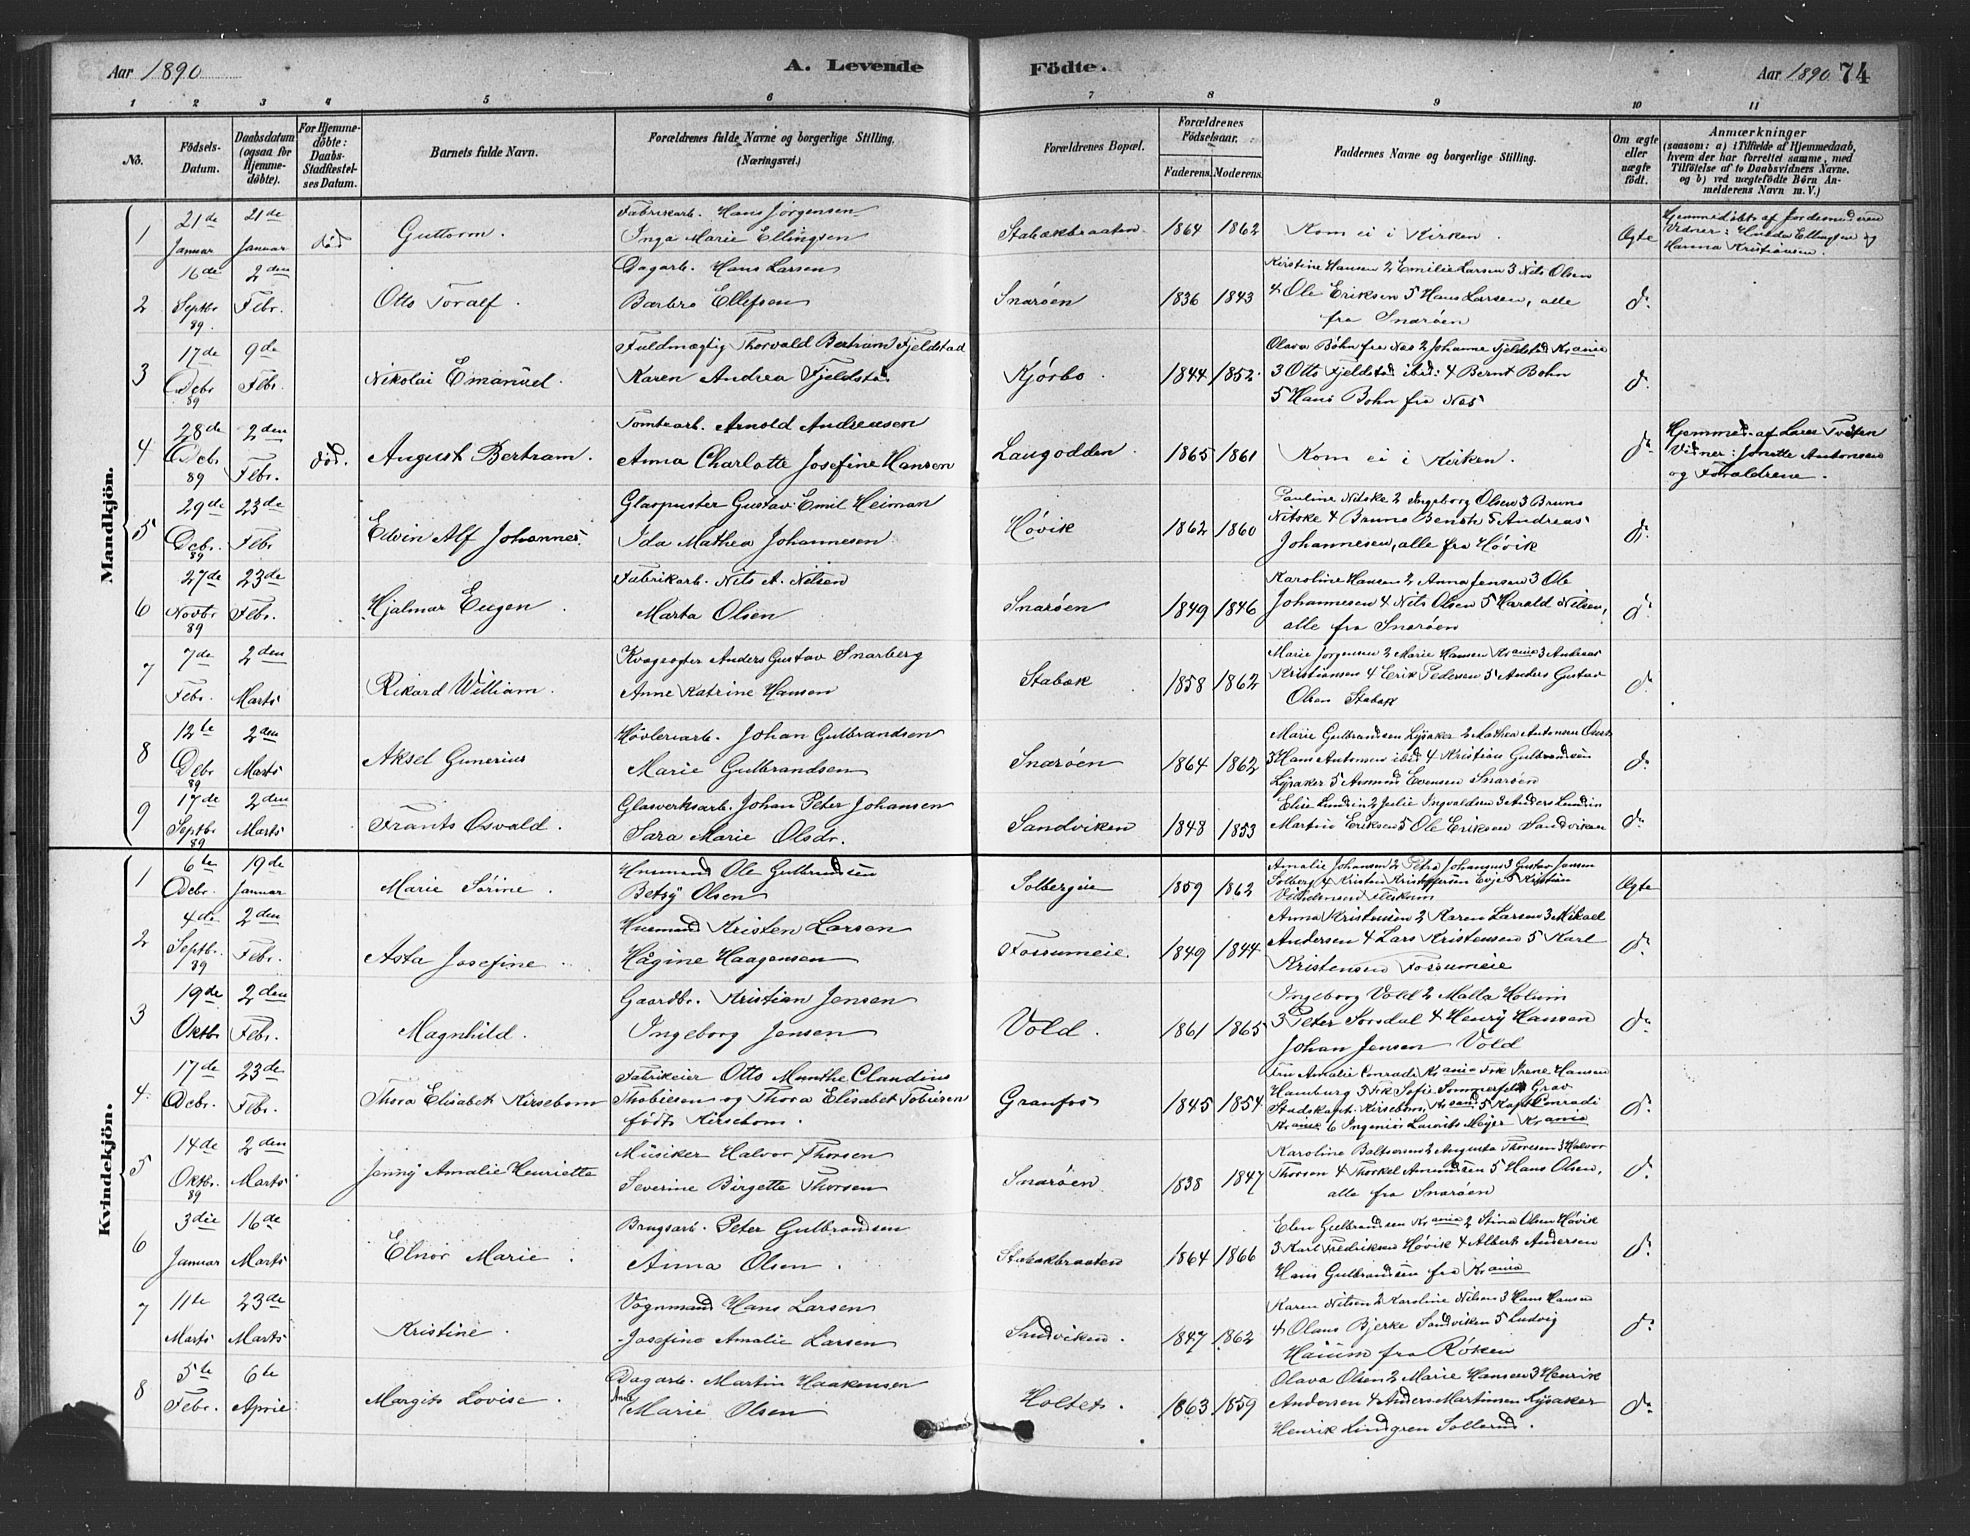 Aar 1890
A. Levende
Fødte.
Aar 1890. 74
1 2 3 4 5 6 7 8 9 10 11
No.
Fødsels-Datum.
Daabsdatum (ogsaa for Hjemmedøbte).
For Hjemmedøbte: Daabs-Stadfæstelses Datum.
Barnets fulde Navn.
Forældrenes fulde Navne og borgerlige Stilling. (Næringsvei.)
Forældrenes Bopæl.
Forældrenes Fødselsaar.
Faderens. Moderens.
Faddernes Navne og borgerlige Stilling.
Om ægte eller uægte født.
Anmærkninger
(saasom: a) i Tilfælde af Hjemmedaab, hvem der har forrettet samme, med Tilføielse af to Daabsvidners Navne. og b) ved uægtefødte Børn Anmelderens Navn m. V.)
Mandkjøn.
1 21de Januar 21de Januar død Guttorm.
Fabrikarb. Hans Jørgensen
Inga Marie Ellingsen
Stabækbraaten 1864 1862 Kom ei i Kirken. Ægte
Hjemmedøbt af Jordemoderen
Vidner: Hulda Ellingsen og
Hanna Kristiansen.
2 16de Septbr. 89. 2den Febr. Otto Toralf.
Dagarb. Hans Larsen
Barbro Ellefsen
Snarøen 1836 1843
Kirstine Hansen 2 Emilie Larsen 3 Nils Olsen
4 Ole Eriksen 5 Hans Larsen, alle
fra Snarøen
do
3 17de Decbr. 89 9de Febr. Nikolai Emanuel.
Fuldmægtig Thorvald Bertram Fjeldstad
Karen Andrea Fjeldstad
Kjørbo 1844 1852.
Olava Bøhn fra Næs 2 Johanne Fjeldstad Krania
3 Otto Fjeldstad ibid: 4 Bernt Bohn
5 Hans Bohn fra Næs
do
4 28de Decbr. 89 2den Febr. død. August Bertram.
Tomtearb. Arnold Andreasen
Anna Charlotte Josefine Hansen
Langodden 1865 1861 Kom ei i Kirken. do
Hjemmed. af Lars Tveten
Vidner: Jonette Antonsen
og Forældrene.
5 29de Decbr. 89 23de Febr. Edvin Alf Johannes.
Glaspuster Gustav Emil Heiman
Ida Mathea Johannesen
Høvik 1862 1860
Pauline Nitske 2 Ingeborg Olsen 3 Bruno
Nitske 4 Bruno Bensch 5 Andreas
Johannesen, alle fra Høvik
do
6 27de Novbr. 89 23de Febr. Hjalmar Eugen.
Fabrikarb. Nils A. Nilsen
Marta Olsen
Snarøen 1849 1846
Karoline Hansen 2 Anna Jensen 3 Ole
Johannesen 4 Nils Olsen 5 Harald Nilsen,
alle fra Snarøen
do
7 7de Febr. 2den Marts Rikard William.
Anders Gustav Snarberg
Anne Katrine Hansen
Stabæk 1858 1862
Marie Jørgensen 2 Marie Hansen Krania 3 Andreas
Kristiansen 4 Erik Pedersen 5 Anders Gustav
Olsen Stabæk
do
8 12te Decbr. 89 2den Marts Aksel Gunerius
Høvleriarb. Johan Gulbrandsen
Marie Gulbrandsen
Snarøen 1864 1862
Marie Gulbrandsen Lysaker 2 Mathea Antonsen
3 Hans Antonsen ibid 4 Kristian Gulbrandsen
Lysaker 5 Amund Evensen Snarøen
do
9 17de Septbr. 89 2den Marts Frants Osvald.
Glasverksarb. Johan Peter Johansen
Sara Marie Olsdr.
Sandviken 1848 1853
Elise Lundin 2 Julie Ingvaldsen 3 Anders Lundin
Martin Eriksen 5 Ole Eriksen Sandviken
do
Kvindekjøn.
1 6te Decbr. 19de Januar Marie Sørine.
Husmand Ole Gulbrandsen
Betsy Olsen
Solbergeie 1859 1862
Amalie Johansen 2 Petra Johansen 3 Gustav Jansen
Solberg 4 Kristen Kristoffersen Evje 5 Kristian
Ægte
2 4de Septbr. 89 2den Febr. Asta Josefine.
Husmand Kristen Larsen
Hågine Haagensen
Fossumeie. 1849 1844
Anna Kristensen 2 Karen Larsen 3 Mikael
Andersen 4 Lars Kristensen 5 Karl
Kristensen Fossumeie
do
3 19de Oktbr. 2den Febr. Magnhild.
Gaardbr. Kristian Jensen
Ingeborg Jensen
Vold. 1861 1865
Ingeborg Vold 2 Malla Holum
3 Peter Sørsdal 4 Henry Hansen
Johan Jensen Vold
do
4. 17de Decbr. 23de Febr. Thora Elisabet Kirsebom
Fabrikeier Otto Munthe Claudius
Thobiesen og Thora Elisabet Tobiesen
født Kirsebom.
Granfos 1845 1854
Fru Amalie Conradi Krania Frk Irene Hansen
Hamburg 5 Frk Sofie Sommerfelt Gran
Stadskapt. Kirsebom Krsand 5 Kapt Conradi
Krania 6 Ingeniør Lauritz Meyer Krania
do
5 14de Oktbr. 89 2den Marts Jenny Amalie Henriette
Musiker Halvor Thorsen
Severine Birgette Thorsen
Snarøen 1838 1847
Karoline Baltsersen 2 Augusta Thorsen 3 Halvor
Thorsen 4 Thorkel Amundsen 5 Hans Olsen,
alle fra Snarøen
do
6 3die Januar 16de Marts Elnor Marie.
Brugsarb. Peter Gulbrandsen
Anna Olsen.
Stabækbraaten 1864 1866
Elen Gulbrandsen Krania 2 Stina Olsen Høvik
3 Karl Fredriksen Høvik 4 Albert Andersen
Hans Gulbrandsen fra Krania
do
7 11te Marts 23de Marts Kristine.
Vognmand Hans Larsen
Josefine Amalie Larsen
Sandviken. 1847 1862
Karen Nilsen 2 Karoline Nilsen 3 Hans Hansen
4 Olaus Bjerke Sandviken 5 Ludvig
Haium fra Røken
do
8 5te Febr. 6te April Margit Lovise.
Dagarb. Martin Haakensen
Anne Marie Olsen
Holtet. 1863 1859
Olava Olsen 2 Marie Hansen 3 Henrik
Andersen 4 Anders Martinsen Lysaker
Henrik Lindgren Sollerud.
do